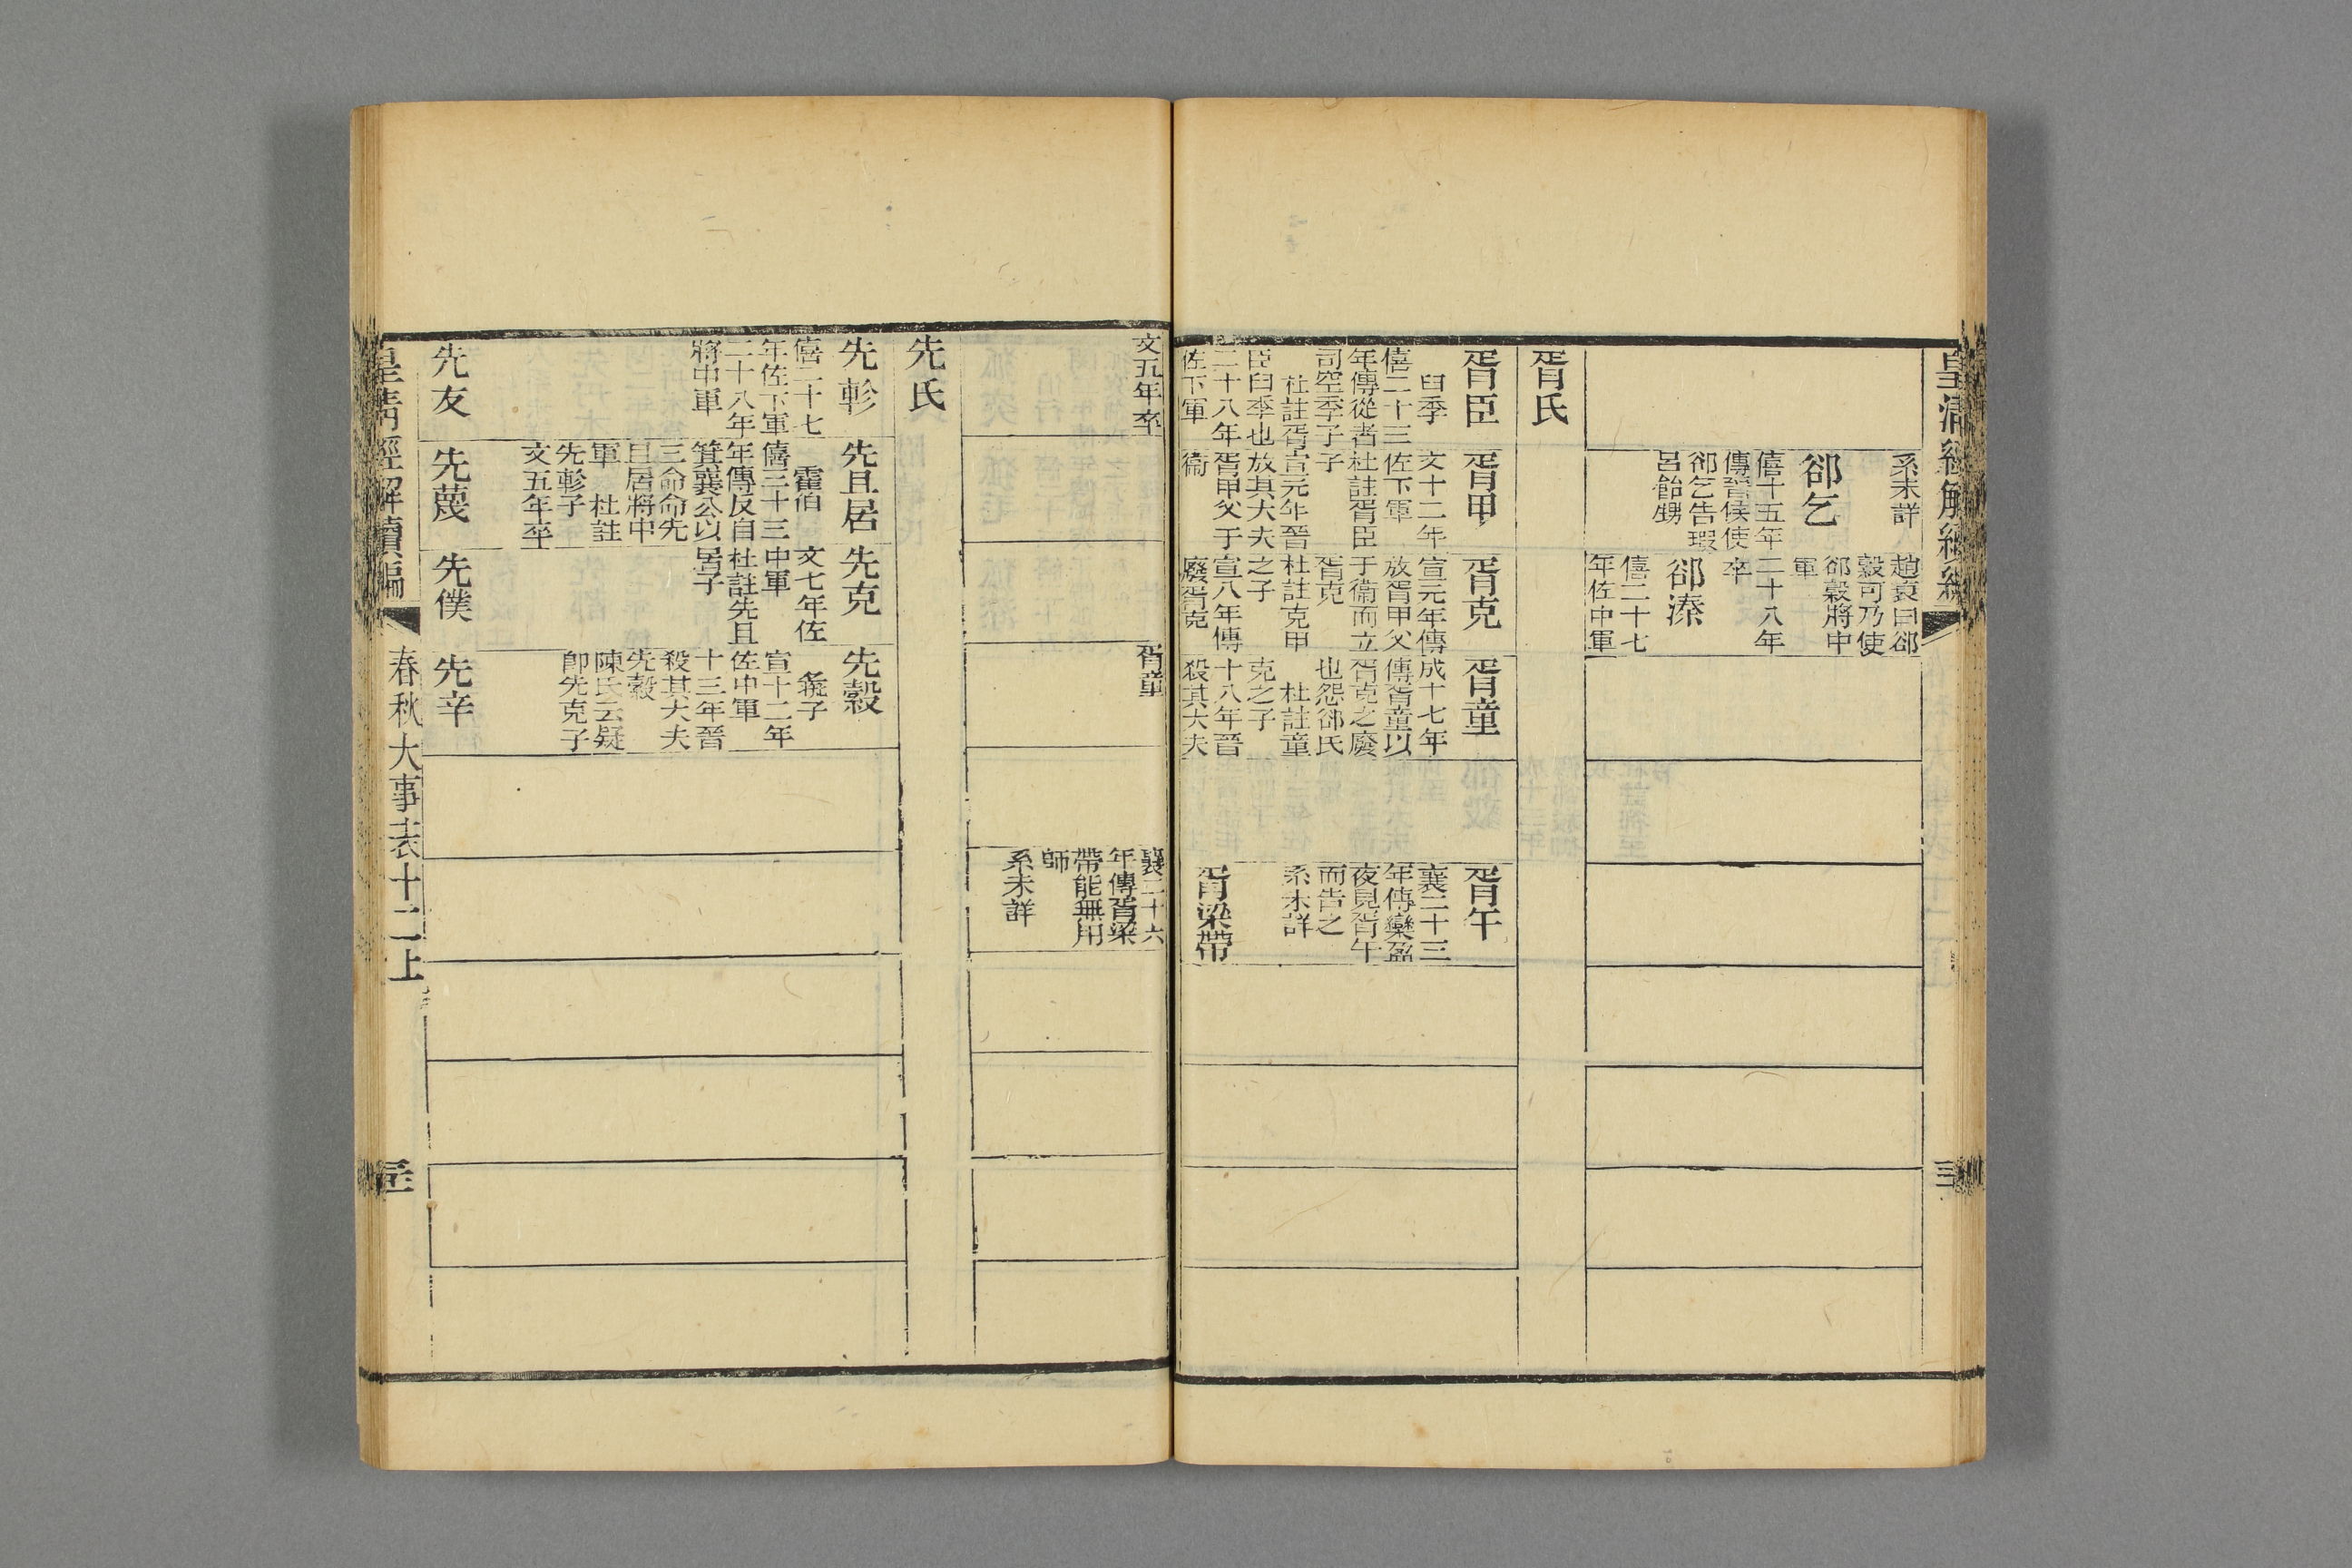 皇清經解續編
系未詳
郤乞
僖十五年
傳晉侯使
郤乞告瑕
呂飴甥
趙衰曰郤
縠可乃使
郤縠將中
軍
二十八年
卒
郤溱
僖二十七
年佐中軍
胥氏
胥臣
臼季
僖二十三
年傳從者
司空季子
杜註胥
臣臼季也
二十八年
佐下軍
胥甲
文十二年
佐下軍
杜註胥臣
子
宣元年晉
放其大夫
胥甲父于
衞
胥克
宣元年傳
放胥甲父
于衞而立
胥克
杜註克甲
之子
宣八年傳
廢胥克
胥童
成十七年
傳胥童以
胥克之廢
也怨郤氏
杜註童
克之子
十八年晉
殺其大夫
胥午
襄二十三
年傳欒盈
夜見胥午
而告之
系未詳
胥梁帶
文五年卒
胥童
襄二十六
年傳胥梁
帶能無用
師
系未詳
先氏
先軫
僖二十七
年佐下軍
二十八年
將中軍
先且居
霍伯
僖三十三
年傳反自
箕襄公以
三命命先
且居將中
軍　杜註
先軫子
文五年卒
先克
文七年佐
中軍
杜註先且
居子
先縠
彘子
宣十二年
佐中軍
十三年晉
殺其大夫
先縠
陳氏云疑
卽先克子
先友
先蔑
先僕
先辛
皇清經解續編
春秋大事表十二上